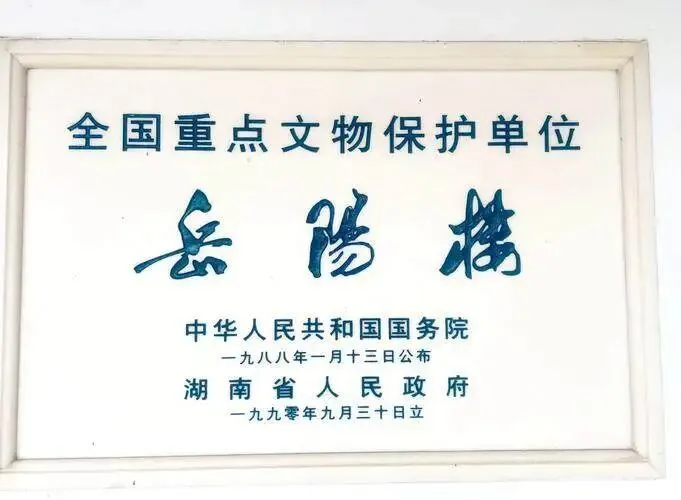 全国重点文物保护单位
岳陽楼
中华人民共和国国务院
一九八八年一月十三日公布
湖南省人民政府
一九九零年九月三十日立